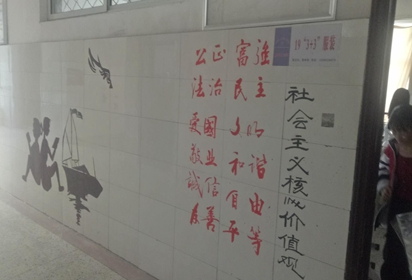 社会主义核心价值观
富强
民主
文明
和谐
自由
平等
公正
法治
爱国
敬业
诚信
友善
"3+3"